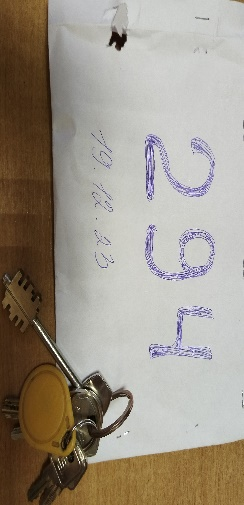 294
19.12.23